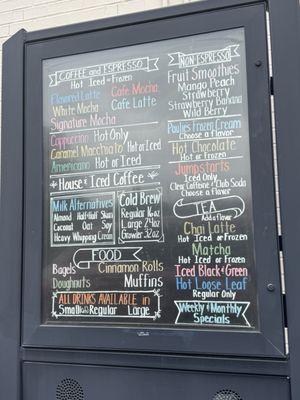 COFFEE and ESPRESSO
Hot Iced or Frozen
Flavored Latte
Cafe Mocha
White Mocha
Cafe Latte
Signature Mocha
Cappuccino Hot Only
Caramel Macchiato Hot or Iced
Americano Hot or Iced
House & Iced Coffee
Milk Alternatives
Almond Half&Half Skim
Coconut Oat Soy
Heavy Whipping Cream
Cold Brew
Regular 16oz
Large 24oz
Growler 32oz
FOOD
Bagels
Cinnamon Rolls
Doughnuts
Muffins
ALL DRINKS AVAILABLE in
Small Regular Large
NON ESPRESSO
Fruit Smoothies
Mango Peach
Strawberry
Strawberry Banana
Wild Berry
Paulies Frozen Cream
Choose a Flavor
Hot Chocolate
Hot or Frozen
Jumpstarts
Iced Only
Choose a Flavor
TEA
Add a Flavor
Chai Latte
Hot Iced or Frozen
Matcha
Hot Iced or Frozen
Iced Black & Green
Hot Loose Leaf
Regular Only
Weekly & Monthly
Specials